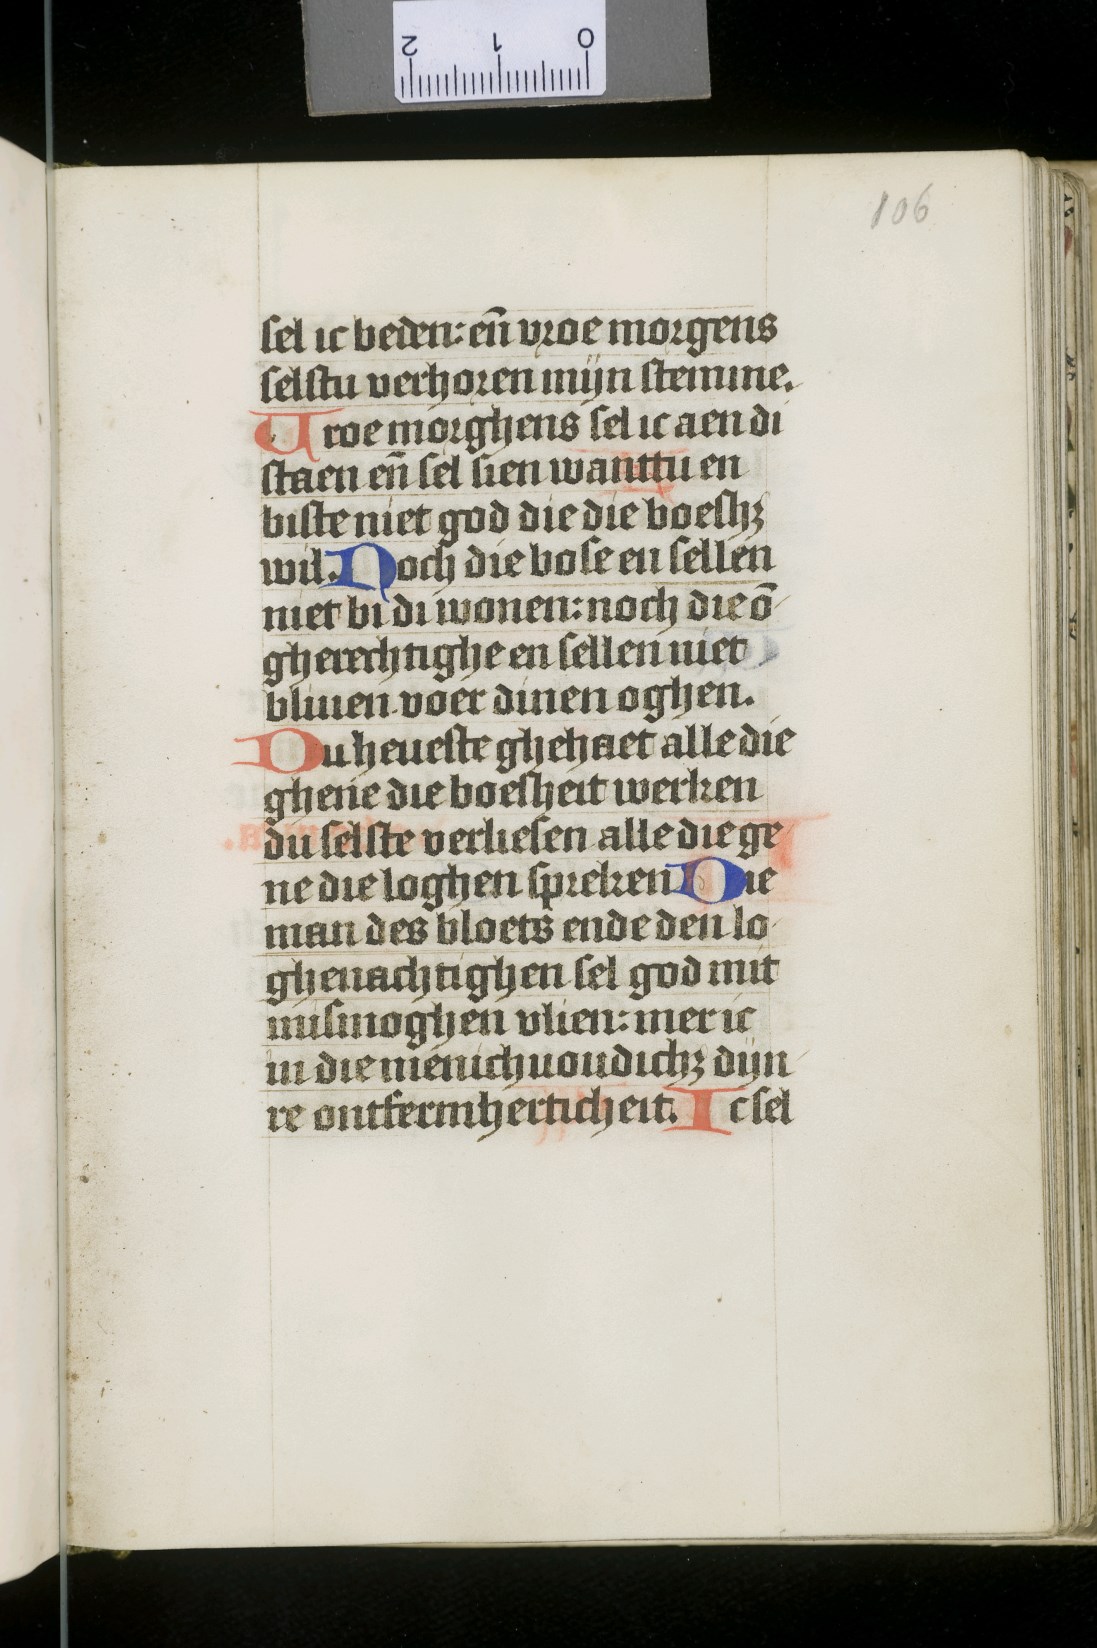 2 1 0
106
sel ic beden: en̄ vroe morgens
selstu verhoren mijn stemme.
Vroe morghens sel ic aen di
staen en̄ sel sien wanttu en
biste niet god die die boeshꝫ
wil. Noch die bose en sellen
niet bi di wonen: noch die ō
gherechtighe en sellen niet
bliuen voer dinen oghen.
Du heueste ghehaet alle die
ghene die boesheit werken
du selste verliesen alle die ge
ne die loghen spreken Die
man des bloets ende den lo
ghenachtighen sel god mit
mismoghen vlien: mer ic
in die menichuoudichꝫ dijn
re ontfermherticheit. Ic sel